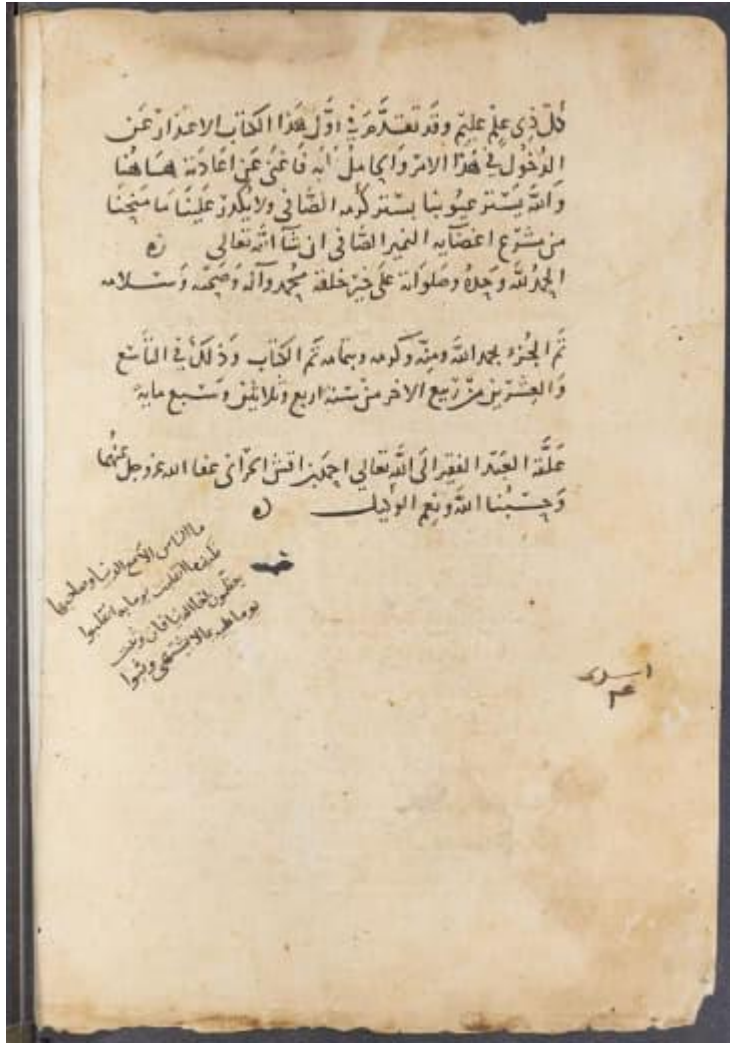 كل ذي علم عليم وقد تقدم في اول هذا الكتاب الاعتذار عن
الدخول في هذا الامر والحامل اليه فاغنى عن اعادته هاهنا
والله يستر عيوبنا بستر كرمه الضافي ولا يكدر علينا ما منحنا
من مشرع اعضايه النمير الصافي ان شا الله تعالى
الحمد لله وحده وصلواته على خير خلقه محمد وآله وصحبه وسلامه
تم الجزء بحمد الله ومنه وكرمه وبتمامه تم الكتاب وذلك في التاسع
والعشرين من ربيع الاخر من سنة اربع وثلاثين وسبع ماية
علقه العبد الفقير الى الله تعالى احمد بن اقش الحراني عفا الله عز وجل عنهما
وحسبنا الله ونعم الوكيل
ما الناس الا مع الدنيا وصاحبها
فكيف ما انقلبت يوما به انقلبوا
يعظمون اخا الدنيا فان وثبت
يوما عليه بما لا يشتهي وثبوا